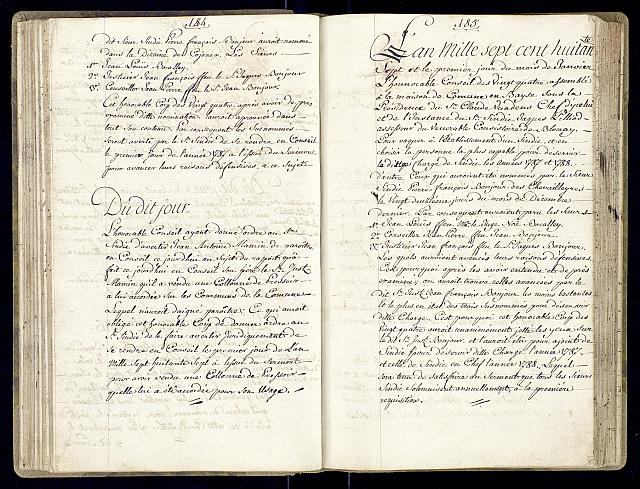 184
dit Sieur Sindic Pierre françois Bonjour auroit nommé
dans la Dizaine de Cojonex. Les Sieurs
1° Jean Louis Bocalley.
2° Justicier Jean françois ffeu le Sr. Jaques Bonjour
3° Conseiller Jean Pierre ffeu le Sr. Jean Bonjour.
Cet honorable Corp des Vingt quatre, après avoir de près
examiné ditte nomination, l'auroit aprouvée dans
tout son contenu. Par consequent les Susnommés
seront avertis par le Sr. Sindic de se rendre en Conseil
le premier jour de l'année 1787 à l'issue du Serment,
pour avancer leurs raisons défensives, à ce Sujet.
Du dit jour
L'honorable Conseil ayant donné ordre au Sr.
Sindic d'avertir Jean Antoine Mamin de paroître
en Conseil ce jourd'hui au Sujet du raport qui a
fait ce jourd'hui en Conseil Son frère le Sr. Just.
Mamin qu'il a vendu une Collonne de Pressoir
a lui accordée Sur les Communs de la Comune
Lequel n'auroit daigné paroître; Ce qui auroit
obligé cet honorable Corp de donner ordre au
Sr. Sindic de le faire avertir juridiquement de
Se rendre en Conseil le premier jour de L'an
Mille Sept huitante Sept à l'issue du Serment
pour avoir vendu une Collonne de Pressoir
qu'elle lui a été accordée pour Son Usage.
185
L'an Mille sept cent huitante
Sept et le premier jour du mois de Janvier
L'honnorable Conseil des Vingt quatre assemblé
à la maison de Comune en Bayse Sous la
Présidence du Sr. Claude Chef
et de l'instance du Sr. Sindic Jaques Pilliod
assesseur du Venerable Consistoire de Blonay.
Pour vaquer à l'Etablissement d'un Sindic, et en
choisir la personne la plus capable pour déservir
la ditte Charge de Sindic les années 1787 et 1788.
d'entre Ceux qui auroient été nommés par le Sieur
Sindic Pierre françois Bonjour des Chevalleyres
le Vingt quatrieme jour du mois de Décembre
dernier. Par consequent auroient paru les Sieurs
1° Jean Louis ffeu Bocalley.
2° Conseiller Jean Pierre ffeu Jean Bonjour.
3° Justicier Jean françois ffeu le Sr. Jaques Bonjour.
Les quels auroient avancés leurs raisons défensives.
C'est pourquoi après les avoir entendu et de près
examiné; on auroit trouvé celles avancées par le
dit Sr. Just. Jean françois Bonjour les moins
et le plus en état des trois Susnommés de déservir
ditte Charge. C'est pourquoi cet honorable Corp des
Vingt quatre auroit unanimément jetté les yeux Sur
le dit Sr. Just. Bonjour, et l'auroit élu pour ajoint de
Sindic pour déservir ditte Charge l'année 1787
et celle de Sindic en Chef l'année 1788. Lequel
sera tenu de satisfaire au Serment que tous les Sieurs
Sindic Solemnisent annuellement, à la première
requisition.